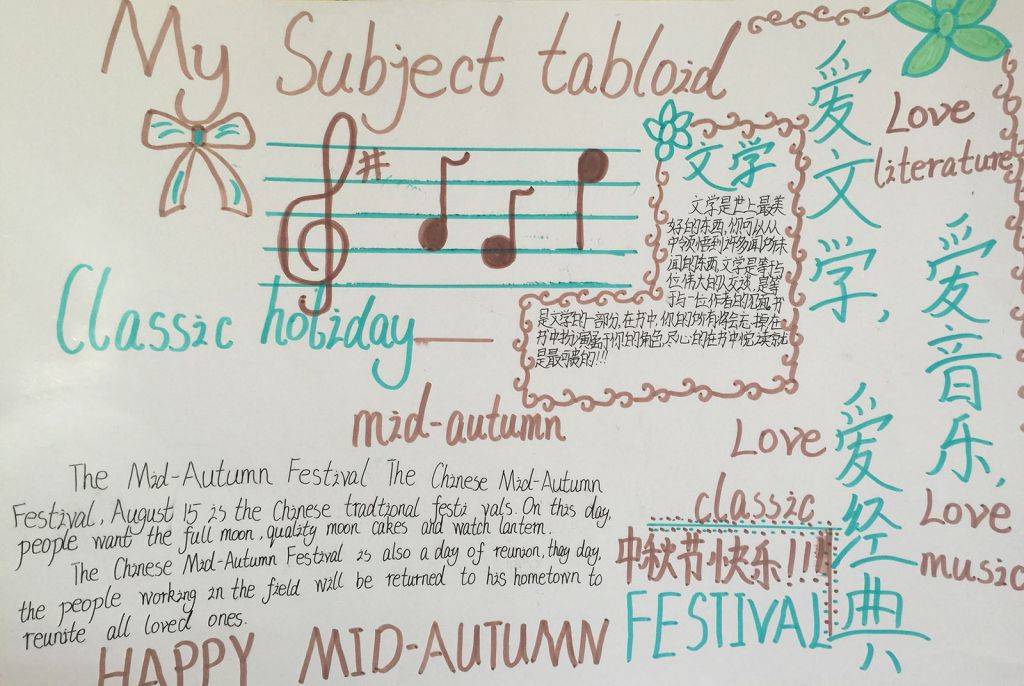 My Subject tabloid
文学
文学是世上最美
好的东西,你可以从
中领悟到许多闻所未
闻的东西,文学是等于与
位伟大的人交谈,是等
于与一位作者的
是文学的一部分,在书中,你的所有将会
书中扮演属于你的角色,尽心的在书中
是最可贵的!!!
爱文学,
Love
literature
爱音乐,
Love
music
爱经典
Love
classic
Classic holiday
mid-autumn
The Mid-Autumn Festival The Chinese Mid-Autumn
Festival, August 15 is the Chinese tradtional festi vals. On this day,
people want the full moon, quality moon cakes and watch lantern.
The Chinese Mid-Autumn Festival is also a day of reunion, they day,
the people working in the field will be returned to his hometown to
reunite all loved ones.
中秋节快乐!!!
HAPPY MID-AUTUMN FESTIVAL